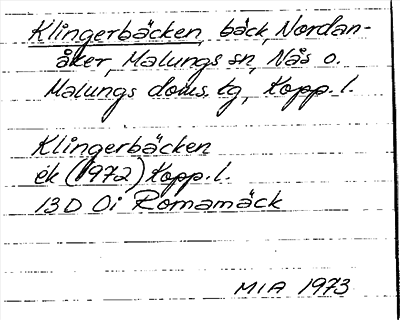 Klingerbäcken, bäck, Nordan-
åker, Malungs sn, Nås o.
Malungs doms. lg, Kopp. l.
Klingerbäcken
ek (1972) Kopp. l.
13D 0i Romamäck
MIA 1973